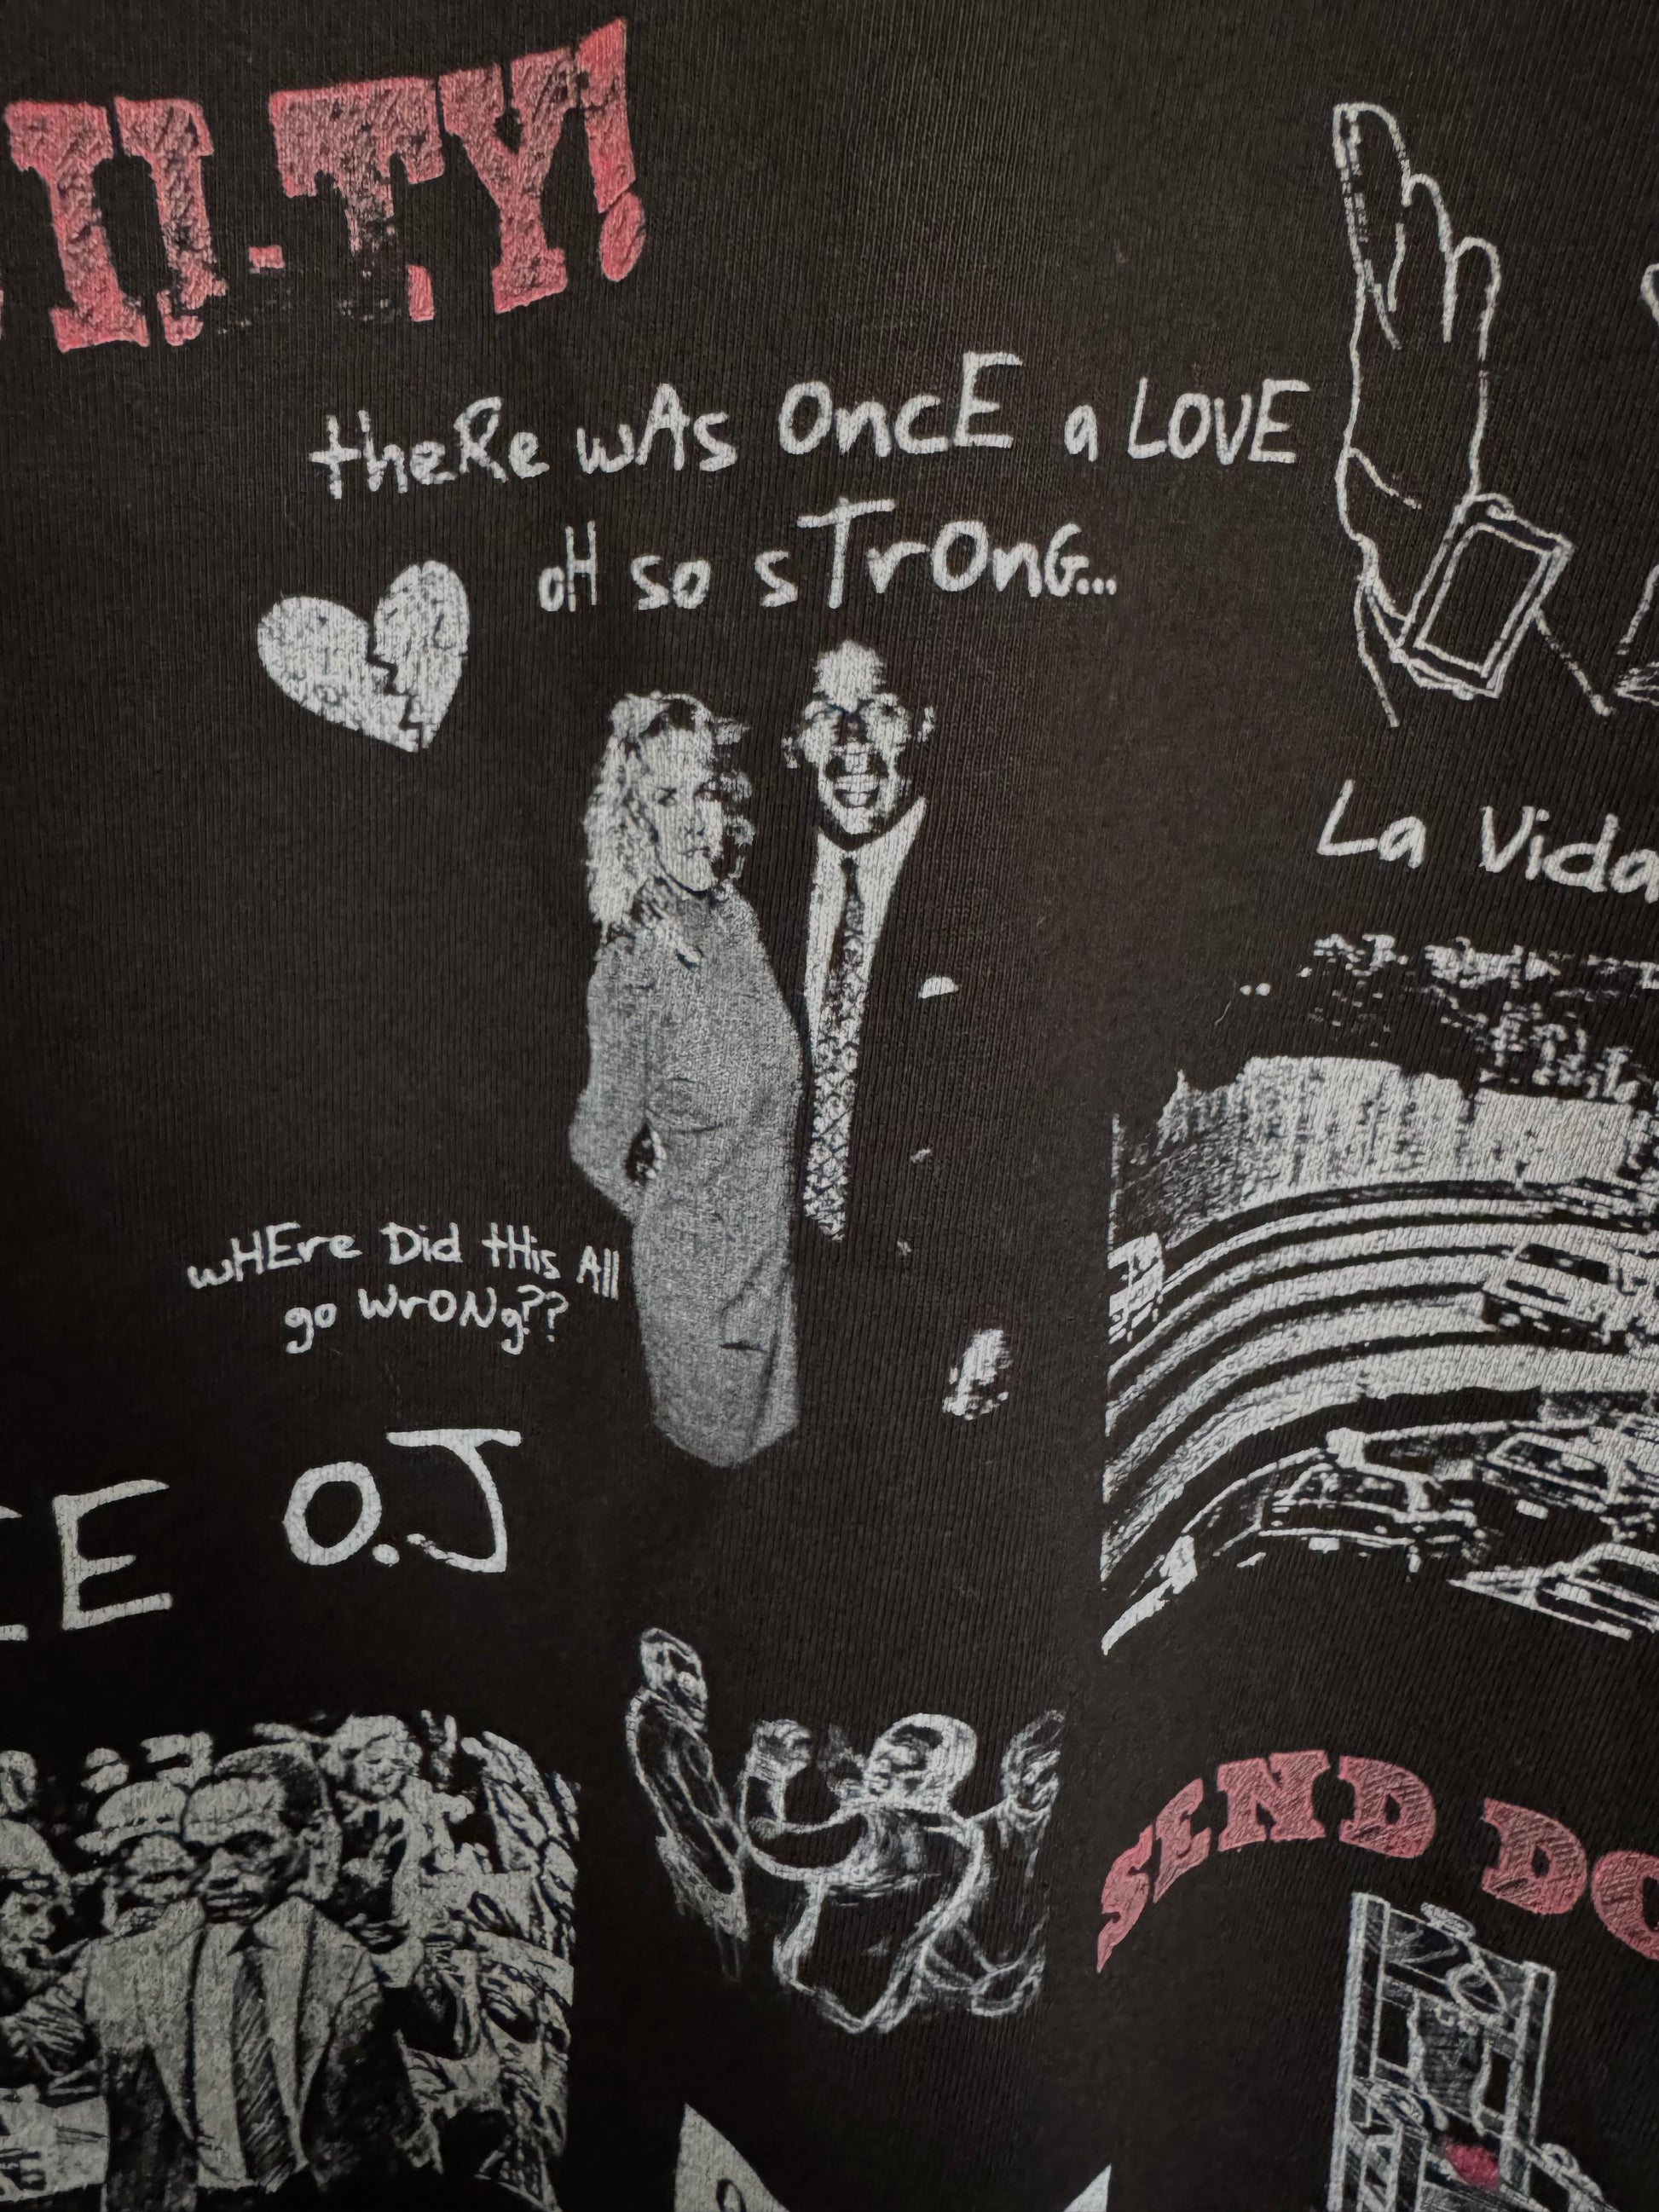 ILTY!
theRe wAs OncE a LOVE
oH so sTrOnG...
La Vida
wHEre Did tHis All
go WrONg??
E O.J
SEND DO